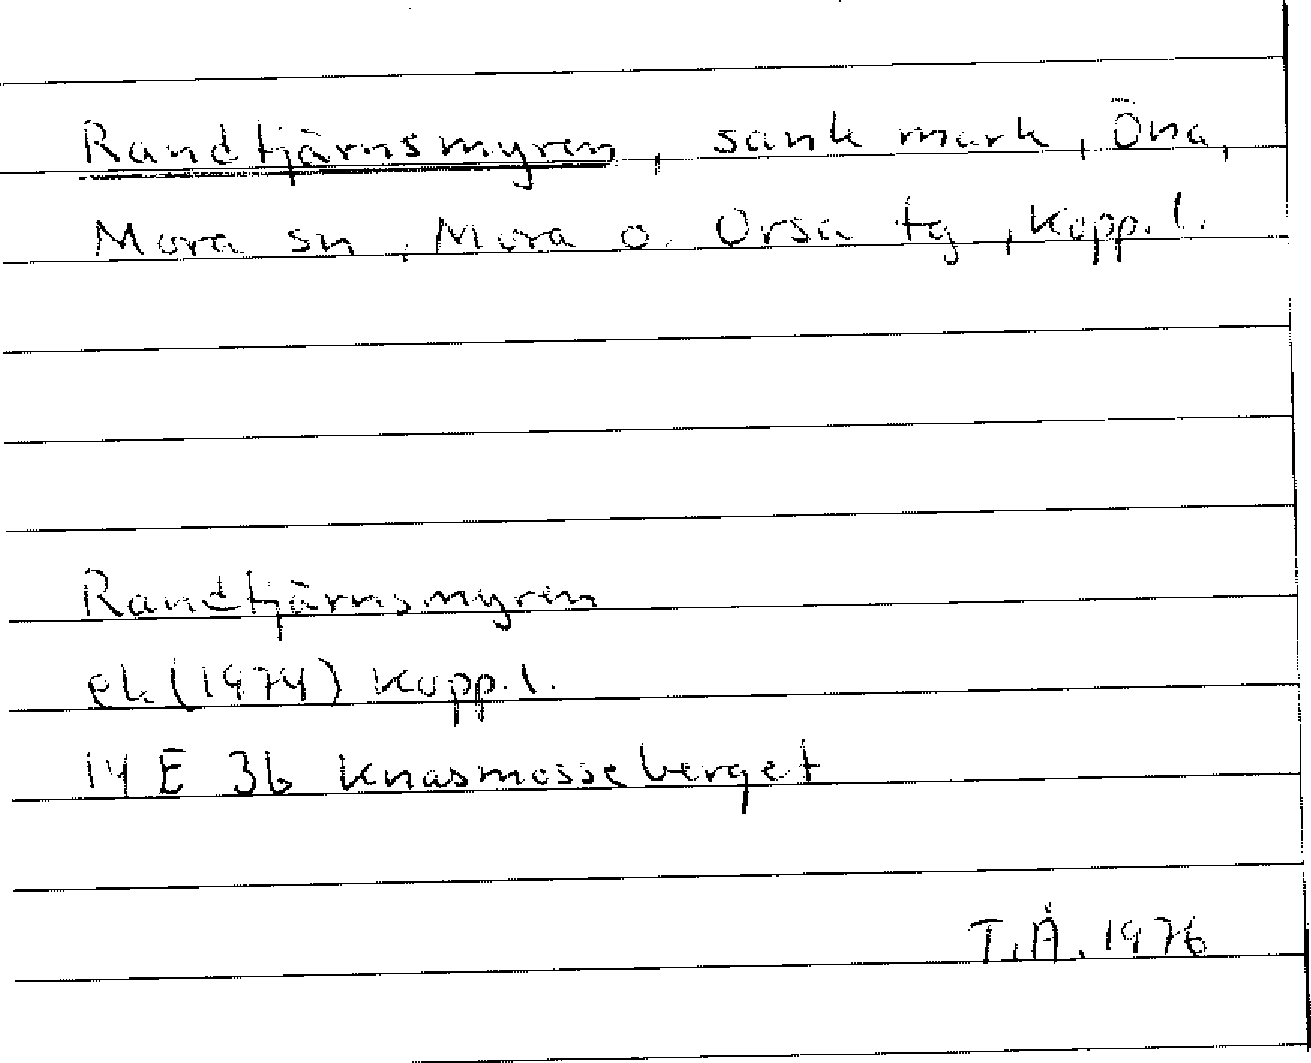 Randtjärnsmyren, sank mark, Öna,
Mora sn, Mora o. Orsa tg, Kopp. l.
Randtjärnsmyren
ek (1974) Kopp. l.
14 E 3b Knasmosseberget
T.Å. 1976